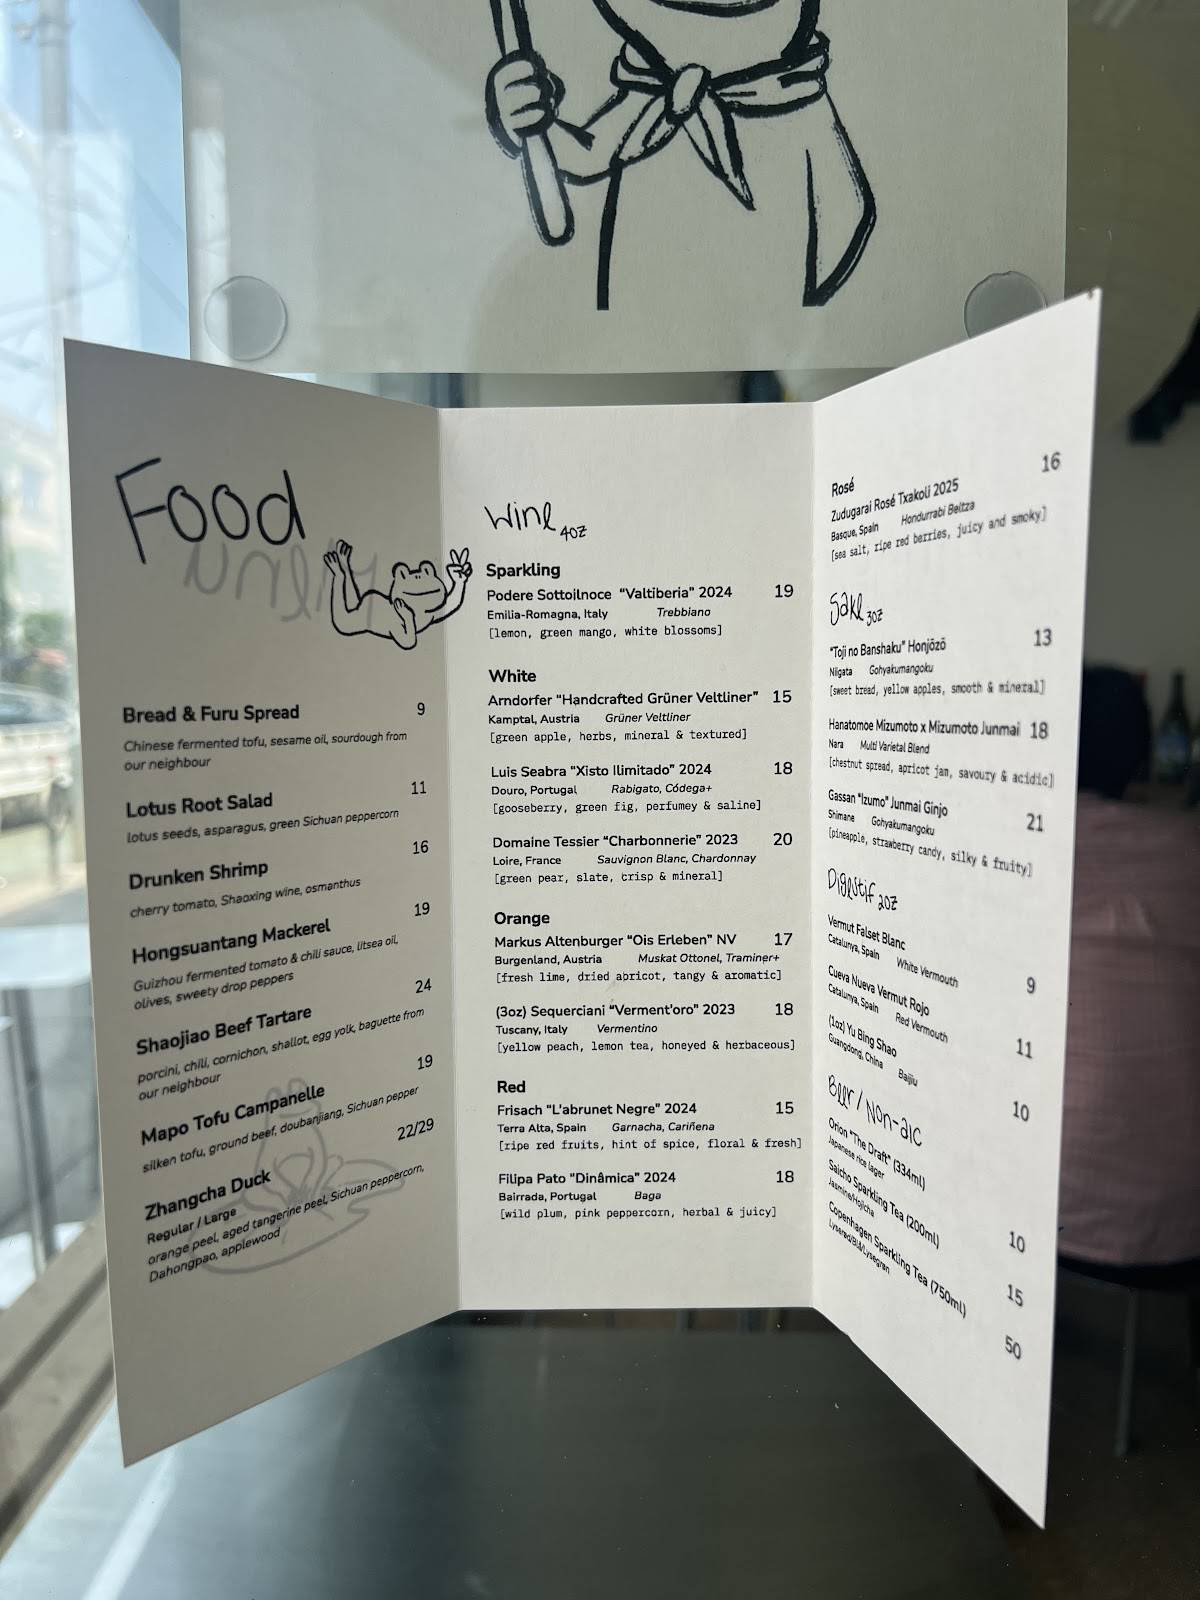 Food
Menu
Bread & Furu Spread 9
Chinese fermented tofu, sesame oil, sourdough from
our neighbour
Lotus Root Salad 11
lotus seeds, asparagus, green Sichuan peppercorn
Drunken Shrimp 16
cherry tomato, Shaoxing wine, osmanthus
Hongsuantang Mackerel 19
Guizhou fermented tomato & chili sauce, litsea oil,
olives, sweety drop peppers
Shaojiao Beef Tartare 24
porcini, chili, cornichon, shallot, egg yolk, baguette from
our neighbour
Mapo Tofu Campanelle 19
silken tofu, ground beef, doubanjiang, Sichuan pepper
Zhangcha Duck 22/29
Regular / Large
orange peel, aged tangerine peel, Sichuan peppercorn,
Dahongpao, applewood
Wine 4oz
Sparkling
Podere Sottoilnoce “Valtiberia” 2024 19
Emilia-Romagna, Italy Trebbiano
[lemon, green mango, white blossoms]
White
Arndorfer “Handcrafted Grüner Veltliner” 15
Kamptal, Austria Grüner Veltliner
[green apple, herbs, mineral & textured]
Luis Seabra “Xisto Ilimitado” 2024 18
Douro, Portugal Rabigato, Códega+
[gooseberry, green fig, perfumey & saline]
Domaine Tessier “Charbonnerie” 2023 20
Loire, France Sauvignon Blanc, Chardonnay
[green pear, slate, crisp & mineral]
Orange
Markus Altenburger “Ois Erleben” NV 17
Burgenland, Austria Muskat Ottonel, Traminer+
[fresh lime, dried apricot, tangy & aromatic]
(3oz) Sequerciani “Verment'oro” 2023 18
Tuscany, Italy Vermentino
[yellow peach, lemon tea, honeyed & herbaceous]
Red
Frisach “L'abrunet Negre” 2024 15
Terra Alta, Spain Garnacha, Cariñena
[ripe red fruits, hint of spice, floral & fresh]
Filipa Pato “Dinâmica” 2024 18
Bairrada, Portugal Baga
[wild plum, pink peppercorn, herbal & juicy]
Rosé 16
Zudugarai Rosé Txakoli 2025
Basque, Spain Hondurrabi Beltza
[sea salt, ripe red berries, juicy and smoky]
Sake 3oz
“Toji no Banshaku” Honjōzō 13
Niigata Gohyakumangoku
[sweet bread, yellow apples, smooth & mineral]
Hanatomoe Mizumoto x Mizumoto Junmai 18
Nara Multi Varietal Blend
[chestnut spread, apricot jam, savoury & acidic]
Gassan “Izumo” Junmai Ginjo 21
Shimane Gohyakumangoku
[pineapple, strawberry candy, silky & fruity]
Digestif 2oz
Vermut Falset Blanc 9
Catalunya, Spain White Vermouth
Cueva Nueva Vermut Rojo 11
Catalunya, Spain Red Vermouth
(1oz) Yu Bing Shao 10
Guangdong, China Baijiu
Beer / Non-alc
Orion “The Draft” (334ml) 10
Japanese rice lager
Saicho Sparkling Tea (200ml) 15
Jasmine/Hojicha
Copenhagen Sparkling Tea (750ml) 50
Lyserød/Blå/Lysegrøn